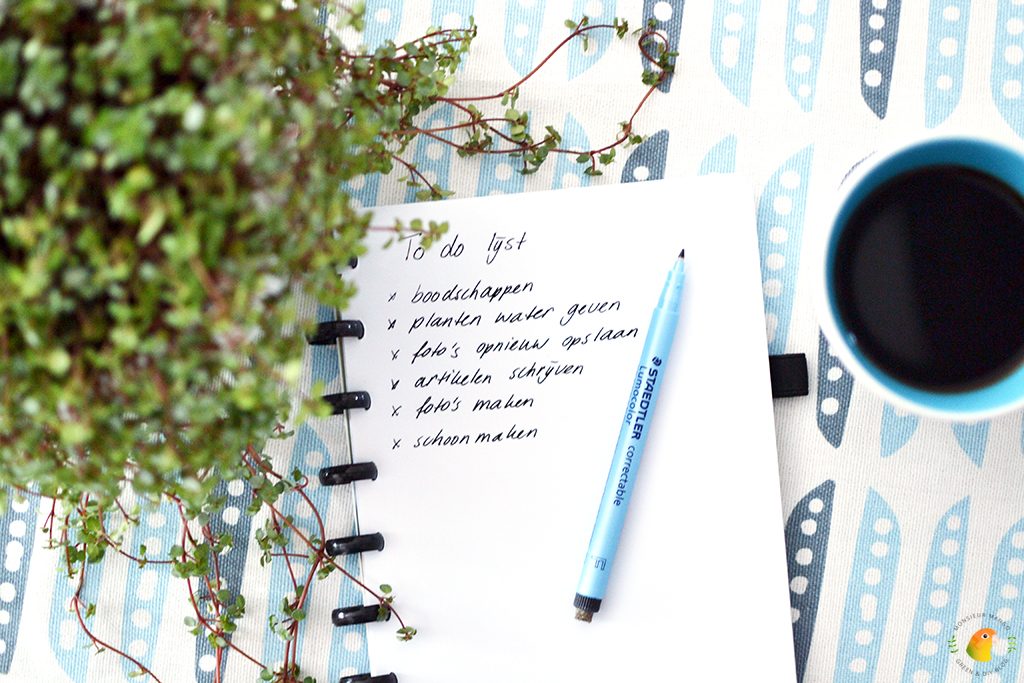 To do lijst
x boodschappen
x planten water geven
x foto's opnieuw opslaan
x artikelen schrijven
x foto's maken
x schoonmaken
STAEDTLER
Lumocolor correctable
F
MONSIEUR MANGO
GREEN & DIY BLOG